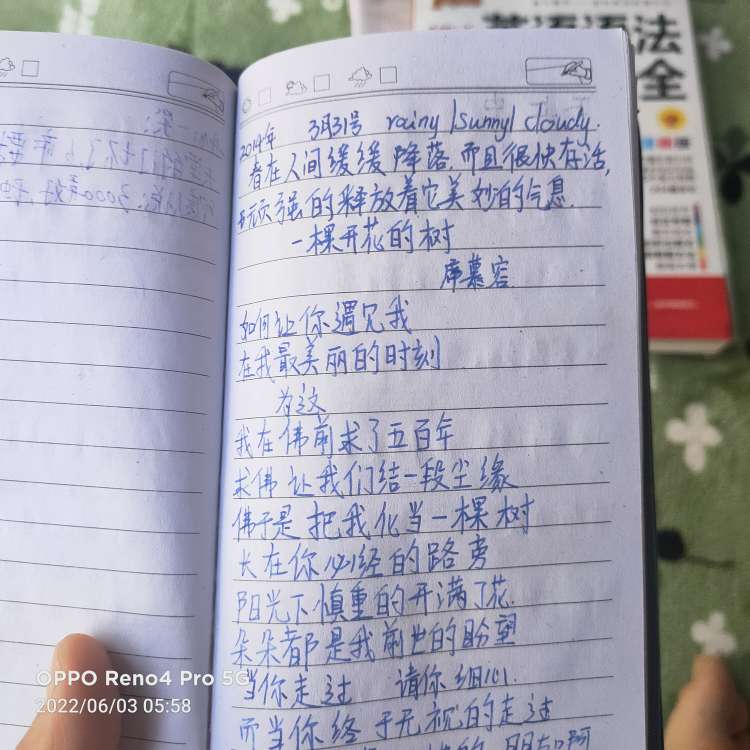 2019年 3月31号 rainy |sunny| cloudy.
春在人间缓缓降落,而且很快存活,
顽强的释放着它美妙的气息.
一棵开花的树
席慕容
如何让你遇见我
在我最美丽的时刻
为这
我在佛前求了五百年
求佛让我们结一段尘缘
佛于是把我化当一棵树
长在你必经的路旁
阳光下慎重的开满了花.
朵朵都是我前世的盼望
当你走过 请你细心.
而当你终于无视的走过
朋友啊
英语语法
全
OPPO Reno4 Pro 5G
2022/06/03 05:58